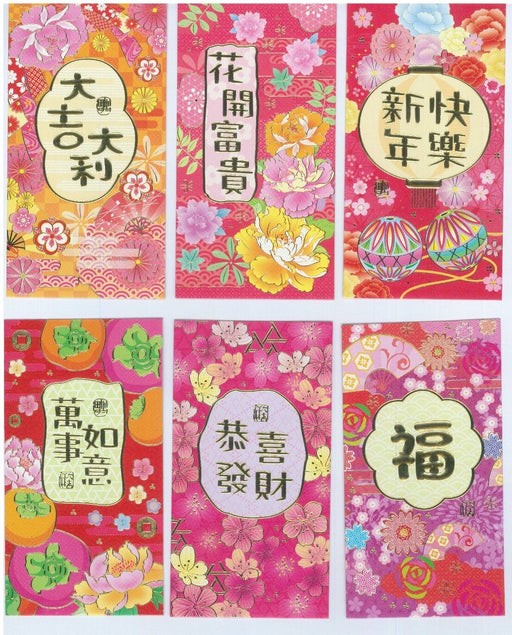 大吉
大利
花開富貴
新年
快樂
萬事
如意
恭喜
發財
福